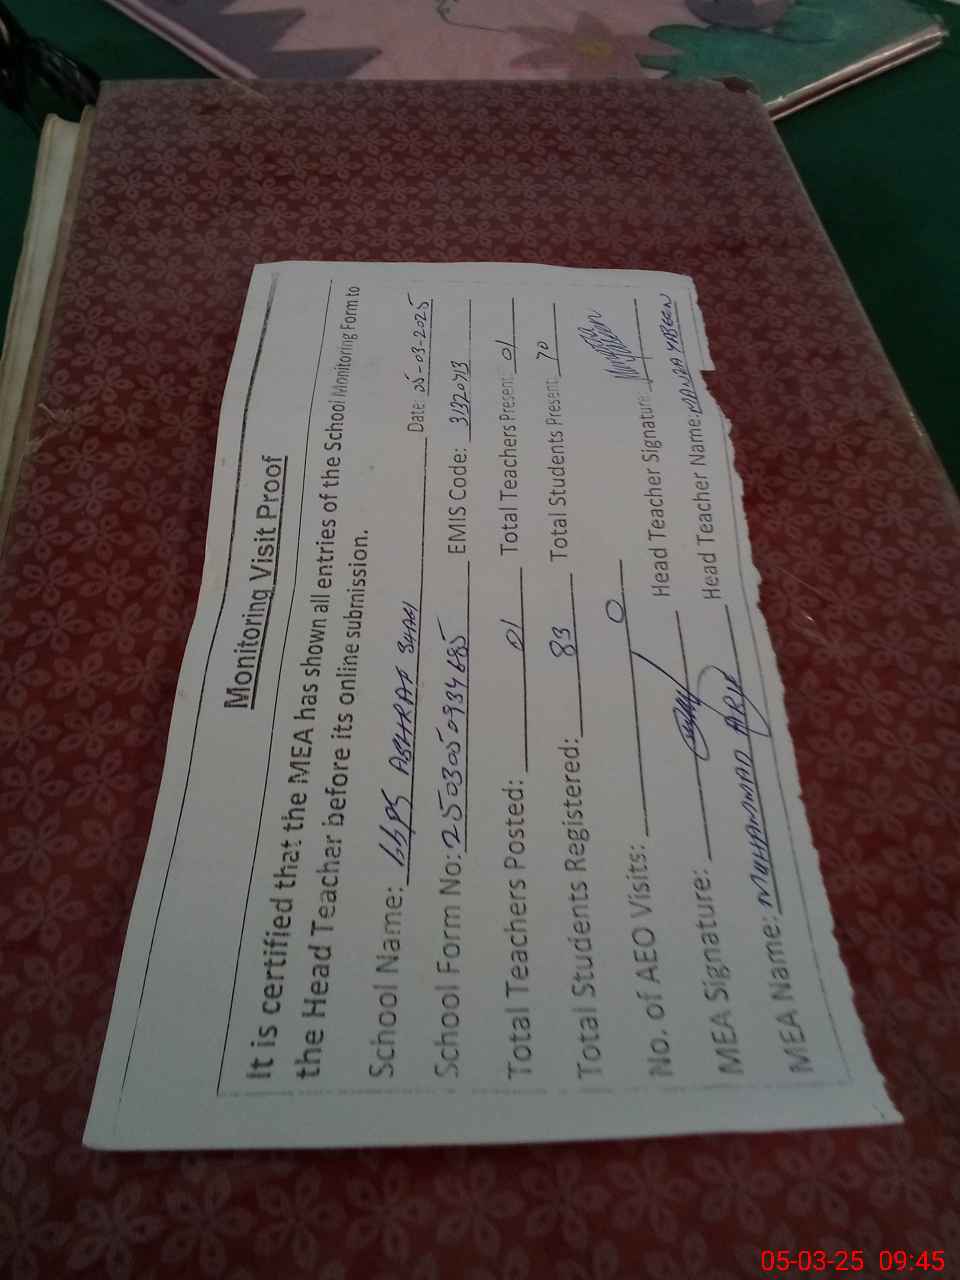 Monitoring Visit Proof
It is certified that the MEA has shown all entries of the School Monitoring Form to
the Head Teacher before its online submission.
School Name: GGPS ASHRAF SHAH Date: 05-03-2025
School Form No: 250305093468 5 EMIS Code: 31320713
Total Teachers Posted: 01 Total Teachers Present: 01
Total Students Registered: 83 Total Students Present: 70
No. of AEO Visits: 0
MEA Signature: Head Teacher Signature:
MEA Name: MUHAMMAD Head Teacher Name:
05-03-25 09:45